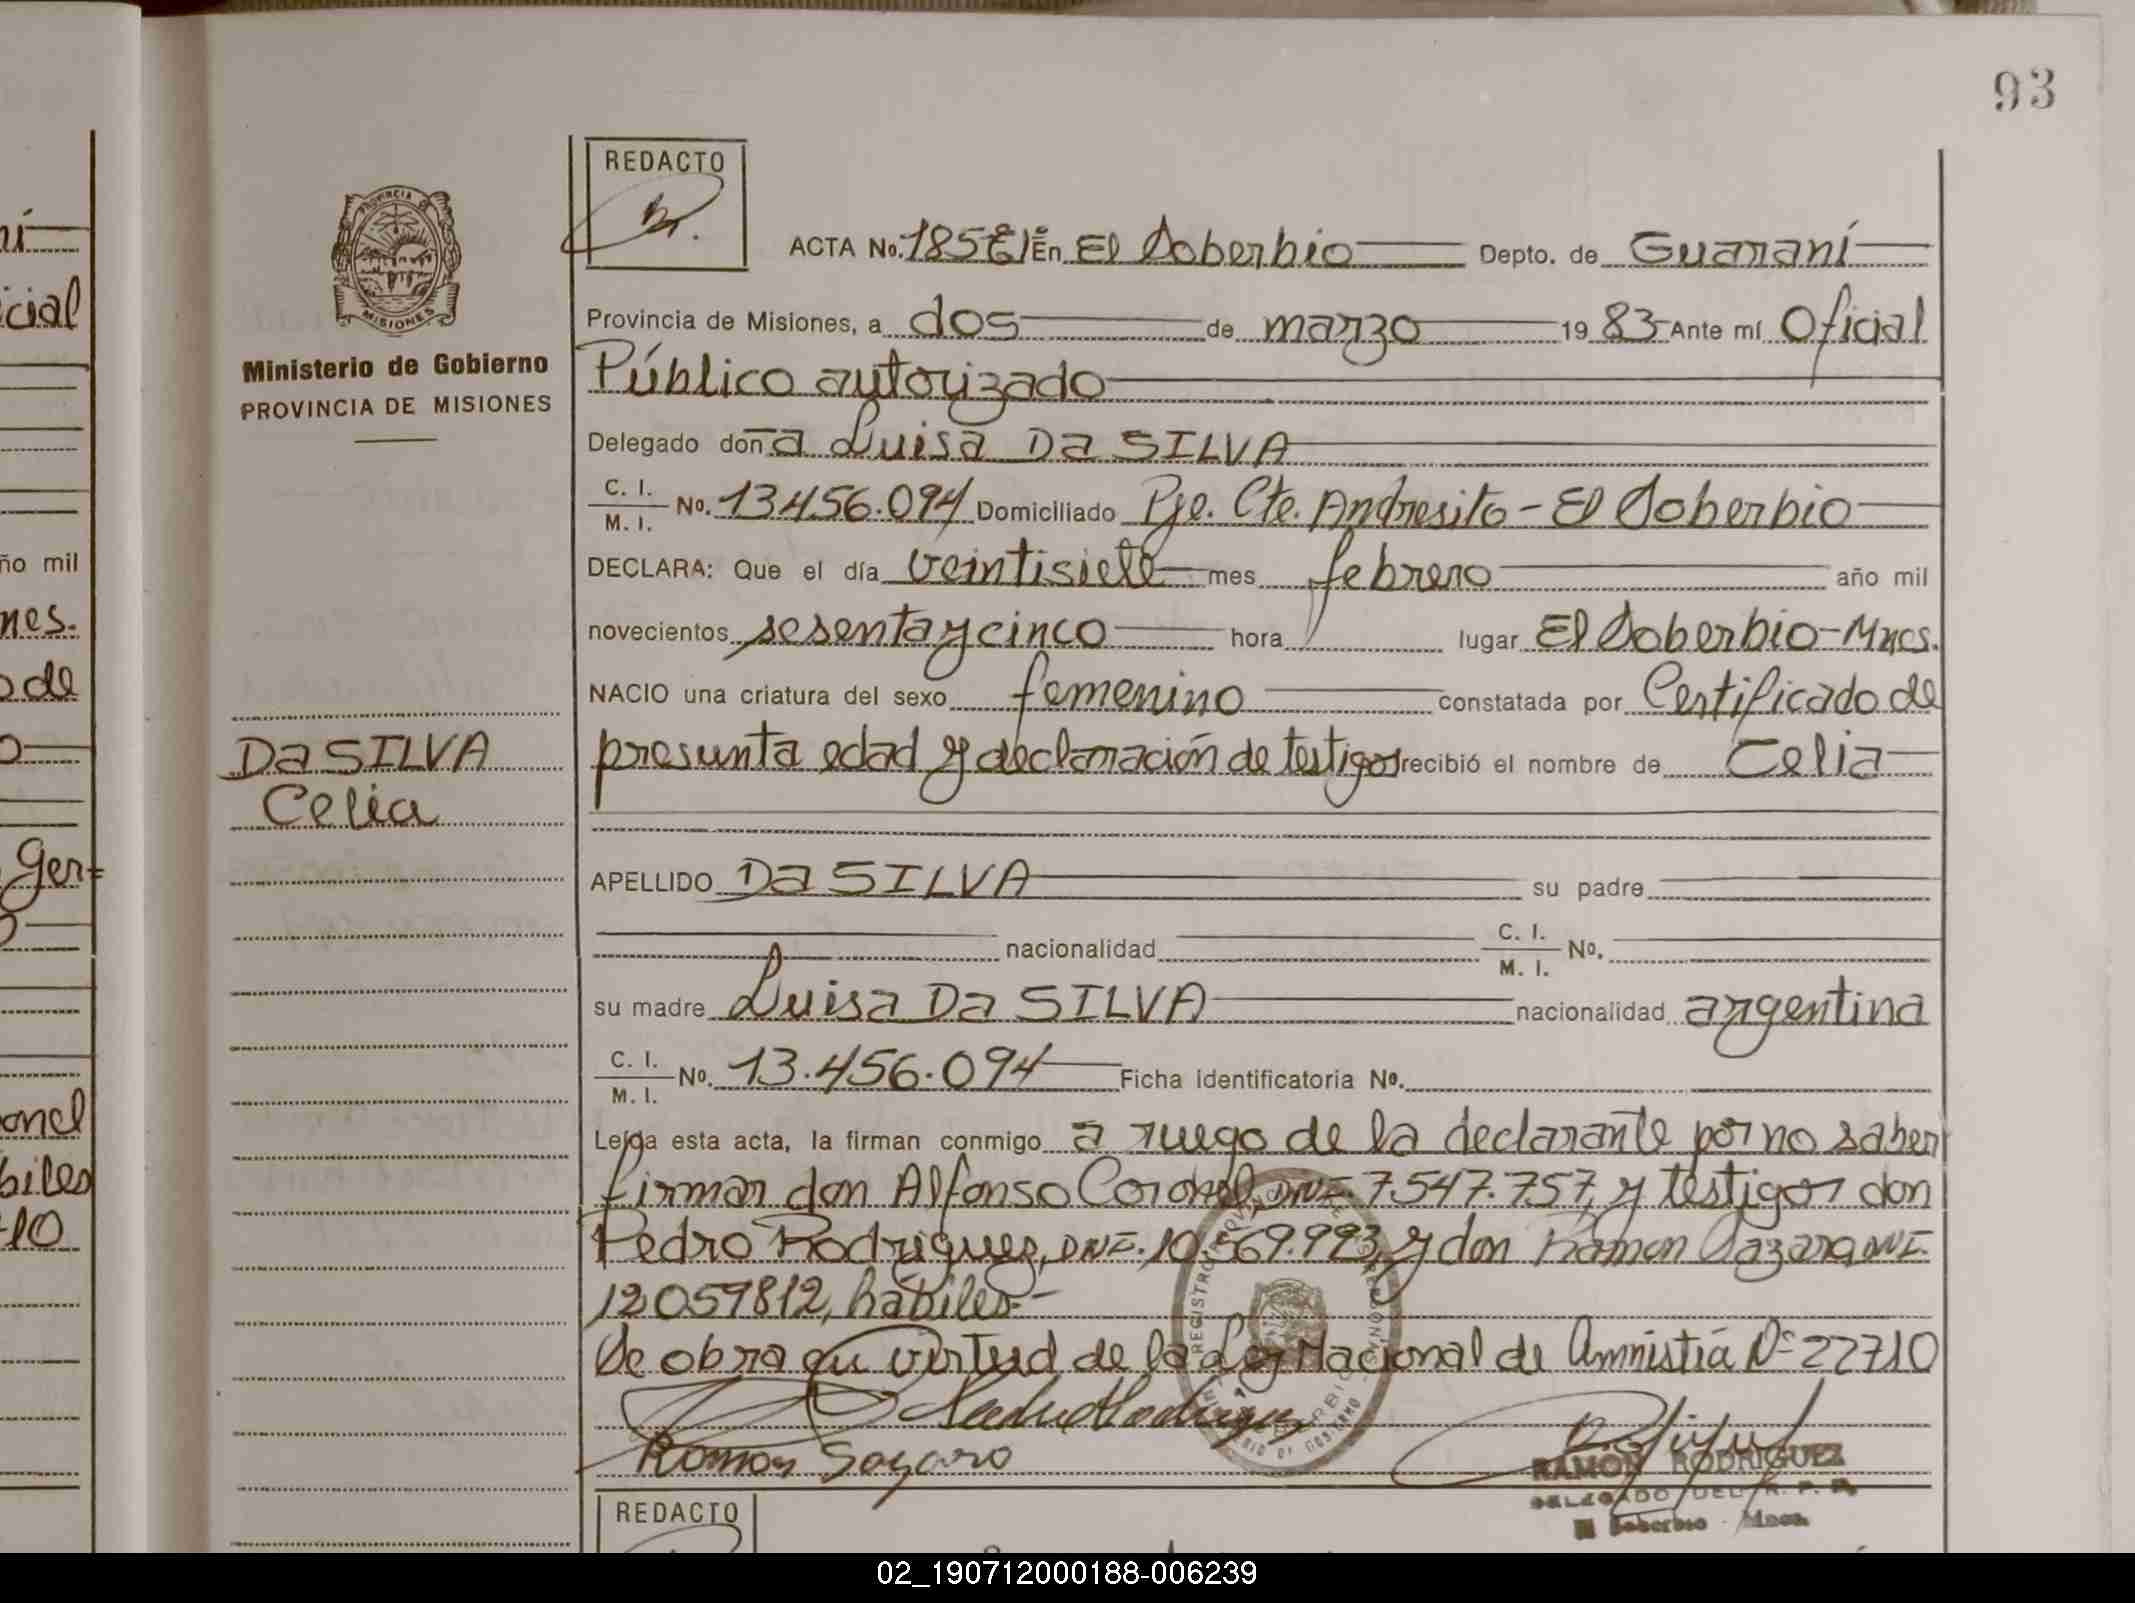 93
REDACTO
ACTA No. 185 En El Soberbio Depto. de Guaraní
PROVINCIA DE
MISIONES
Provincia de Misiones, a dos de marzo 1983 Ante mí Oficial
Ministerio de Gobierno
PROVINCIA DE MISIONES
Público autorizado
Delegado doña Luisa Da SILVA
C. I.
M. I. No. 13.456.094 Domiciliado Pje. Cte. Andresito - El Soberbio
DECLARA: Que el día veintisiete mes febrero año mil
novecientos sesenta y cinco hora lugar El Soberbio - Mnes.
NACIO una criatura del sexo femenino constatada por Certificado de
presunta edad y declaración de testigos recibió el nombre de Celia
Da SILVA
Celia
APELLIDO Da SILVA su padre
nacionalidad C. I.
M. I. No.
su madre Luisa Da SILVA nacionalidad argentina
C. I.
M. I. No. 13.456.094 Ficha identificatoria No.
Leída esta acta, la firman conmigo a ruego de la declarante por no saber
firmar don Alfonso Coronel DNI. 7.547.757, y testigos don
Pedro Rodriguez, DNI. 10.569.993, y don Ramon DNI.
12059812, hábiles.-
Se obra en virtud de la Ley Nacional de Amnistía Nº 22710
Ramon
RAMÓN RODRIGUEZ
DELEGADO DEL R. P. P.
El Soberbio - Mnes.
REDACTO
ní
icial
ño mil
nes.
o de
Ger-
onel
biles
10
02_190712000188-006239